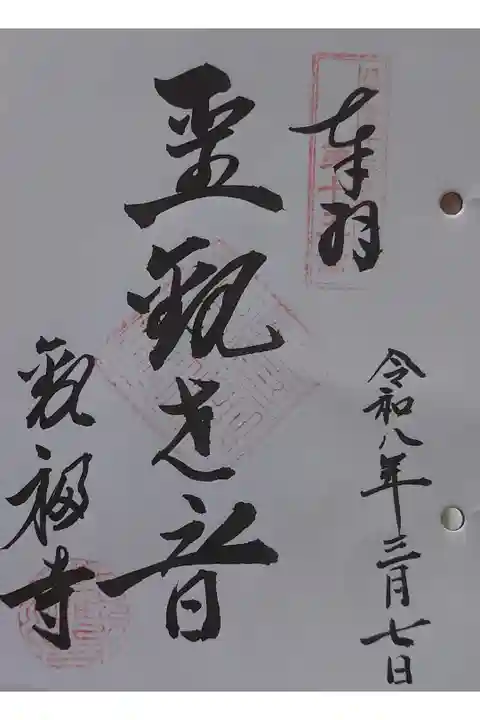 令和八年三月七日
奉拝
聖観世音
観福寺